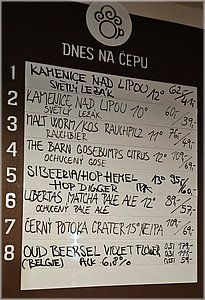 DNES NA ČEPU
1 KAMENICE NAD LIPOU 12° 62,-
SVĚTLÝ LEŽÁK 41,-
2 KAMENICE NAD LIPOU 10° 60,-
SVĚTLÝ LEŽÁK 39,-
3 MALT WORM/KOS RAUCHPILZ 11° 76/-
RAUCHBIER 49,-
4 THE BARN GOSEBUMPS CITRUS 12° 109,-
OCHUCENÝ GOSE 69,-
5 SIBEERIA/HOP HEMEL 13° 95/-
HOP DIGGER IPA 60,-
6 LIBERTAS MATCHA PALE ALE 12° 89/-
OCHUCENÝ PALE ALE 57,-
7 ČERNÝ POTOKA CRATER 15° NEIPA 109,-
69,-
8 OUD BEERSEL VIOLET FLOWER
(BELGIE) ALK 6,8%